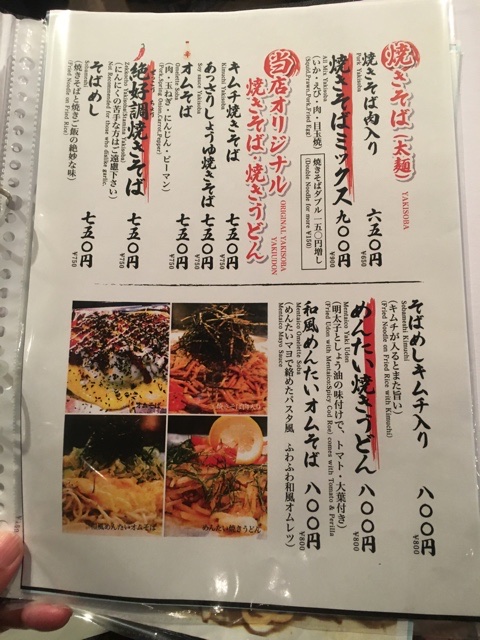 焼きそば(太麺)
YAKISOBA
焼きそば肉入り 六五〇円
Pork Yakisoba ¥650
焼きそばミックス 九〇〇円
All Mix Yakisoba ¥900
(いか・えび・肉・目玉焼)
(Squid,Prawn,Pork,Fried Egg)
焼きそばダブル 一五〇円増し
(Double Noodle for more ¥150)
当店オリジナル
焼きそば・焼きうどん
ORIGINAL YAKISOBA
YAKIUDON
キムチ焼きそば 七五〇円
Kimuchi Yakisoba ¥750
あっさりしょうゆ焼きそば 七五〇円
Soy sauce Yakisoba ¥750
オムそば 七五〇円
Omelette Soba ¥750
(肉・玉ねぎ・にんじん・ピーマン)
(Pork,Spring Onion,Carrot,Pepper)
絶好調焼きそば 七五〇円
¥750
(にんにくの苦手な方はご遠慮下さい)
Not Recommended for those who dislike garlic.
そばめし 七五〇円
Sobameshi ¥750
(焼きそばと焼きご飯の絶妙な味)
(Fried Noodle on Fried Rice)
そばめしキムチ入り 八〇〇円
Sobameshi Kimuchi ¥800
(キムチが入るとまた旨い)
(Fried Noodle on Fried Rice with Kimuchi)
めんたい焼きうどん 八〇〇円
Mentaico Yaki Udon ¥800
(明太子としょう油の味付けで、トマト・大葉付き)
(Fried Udon with Mentaico(Spicy Cod Roe) comes with Tomato & Perilla
和風めんたいオムそば 八〇〇円
Mentaico Omelette Soba ¥800
(めんたいマヨで絡めたパスタ風 ふわふわ和風オムレツ)
Mentaico Mayo Sauce
和風めんたいオムそば
めんたい焼きうどん